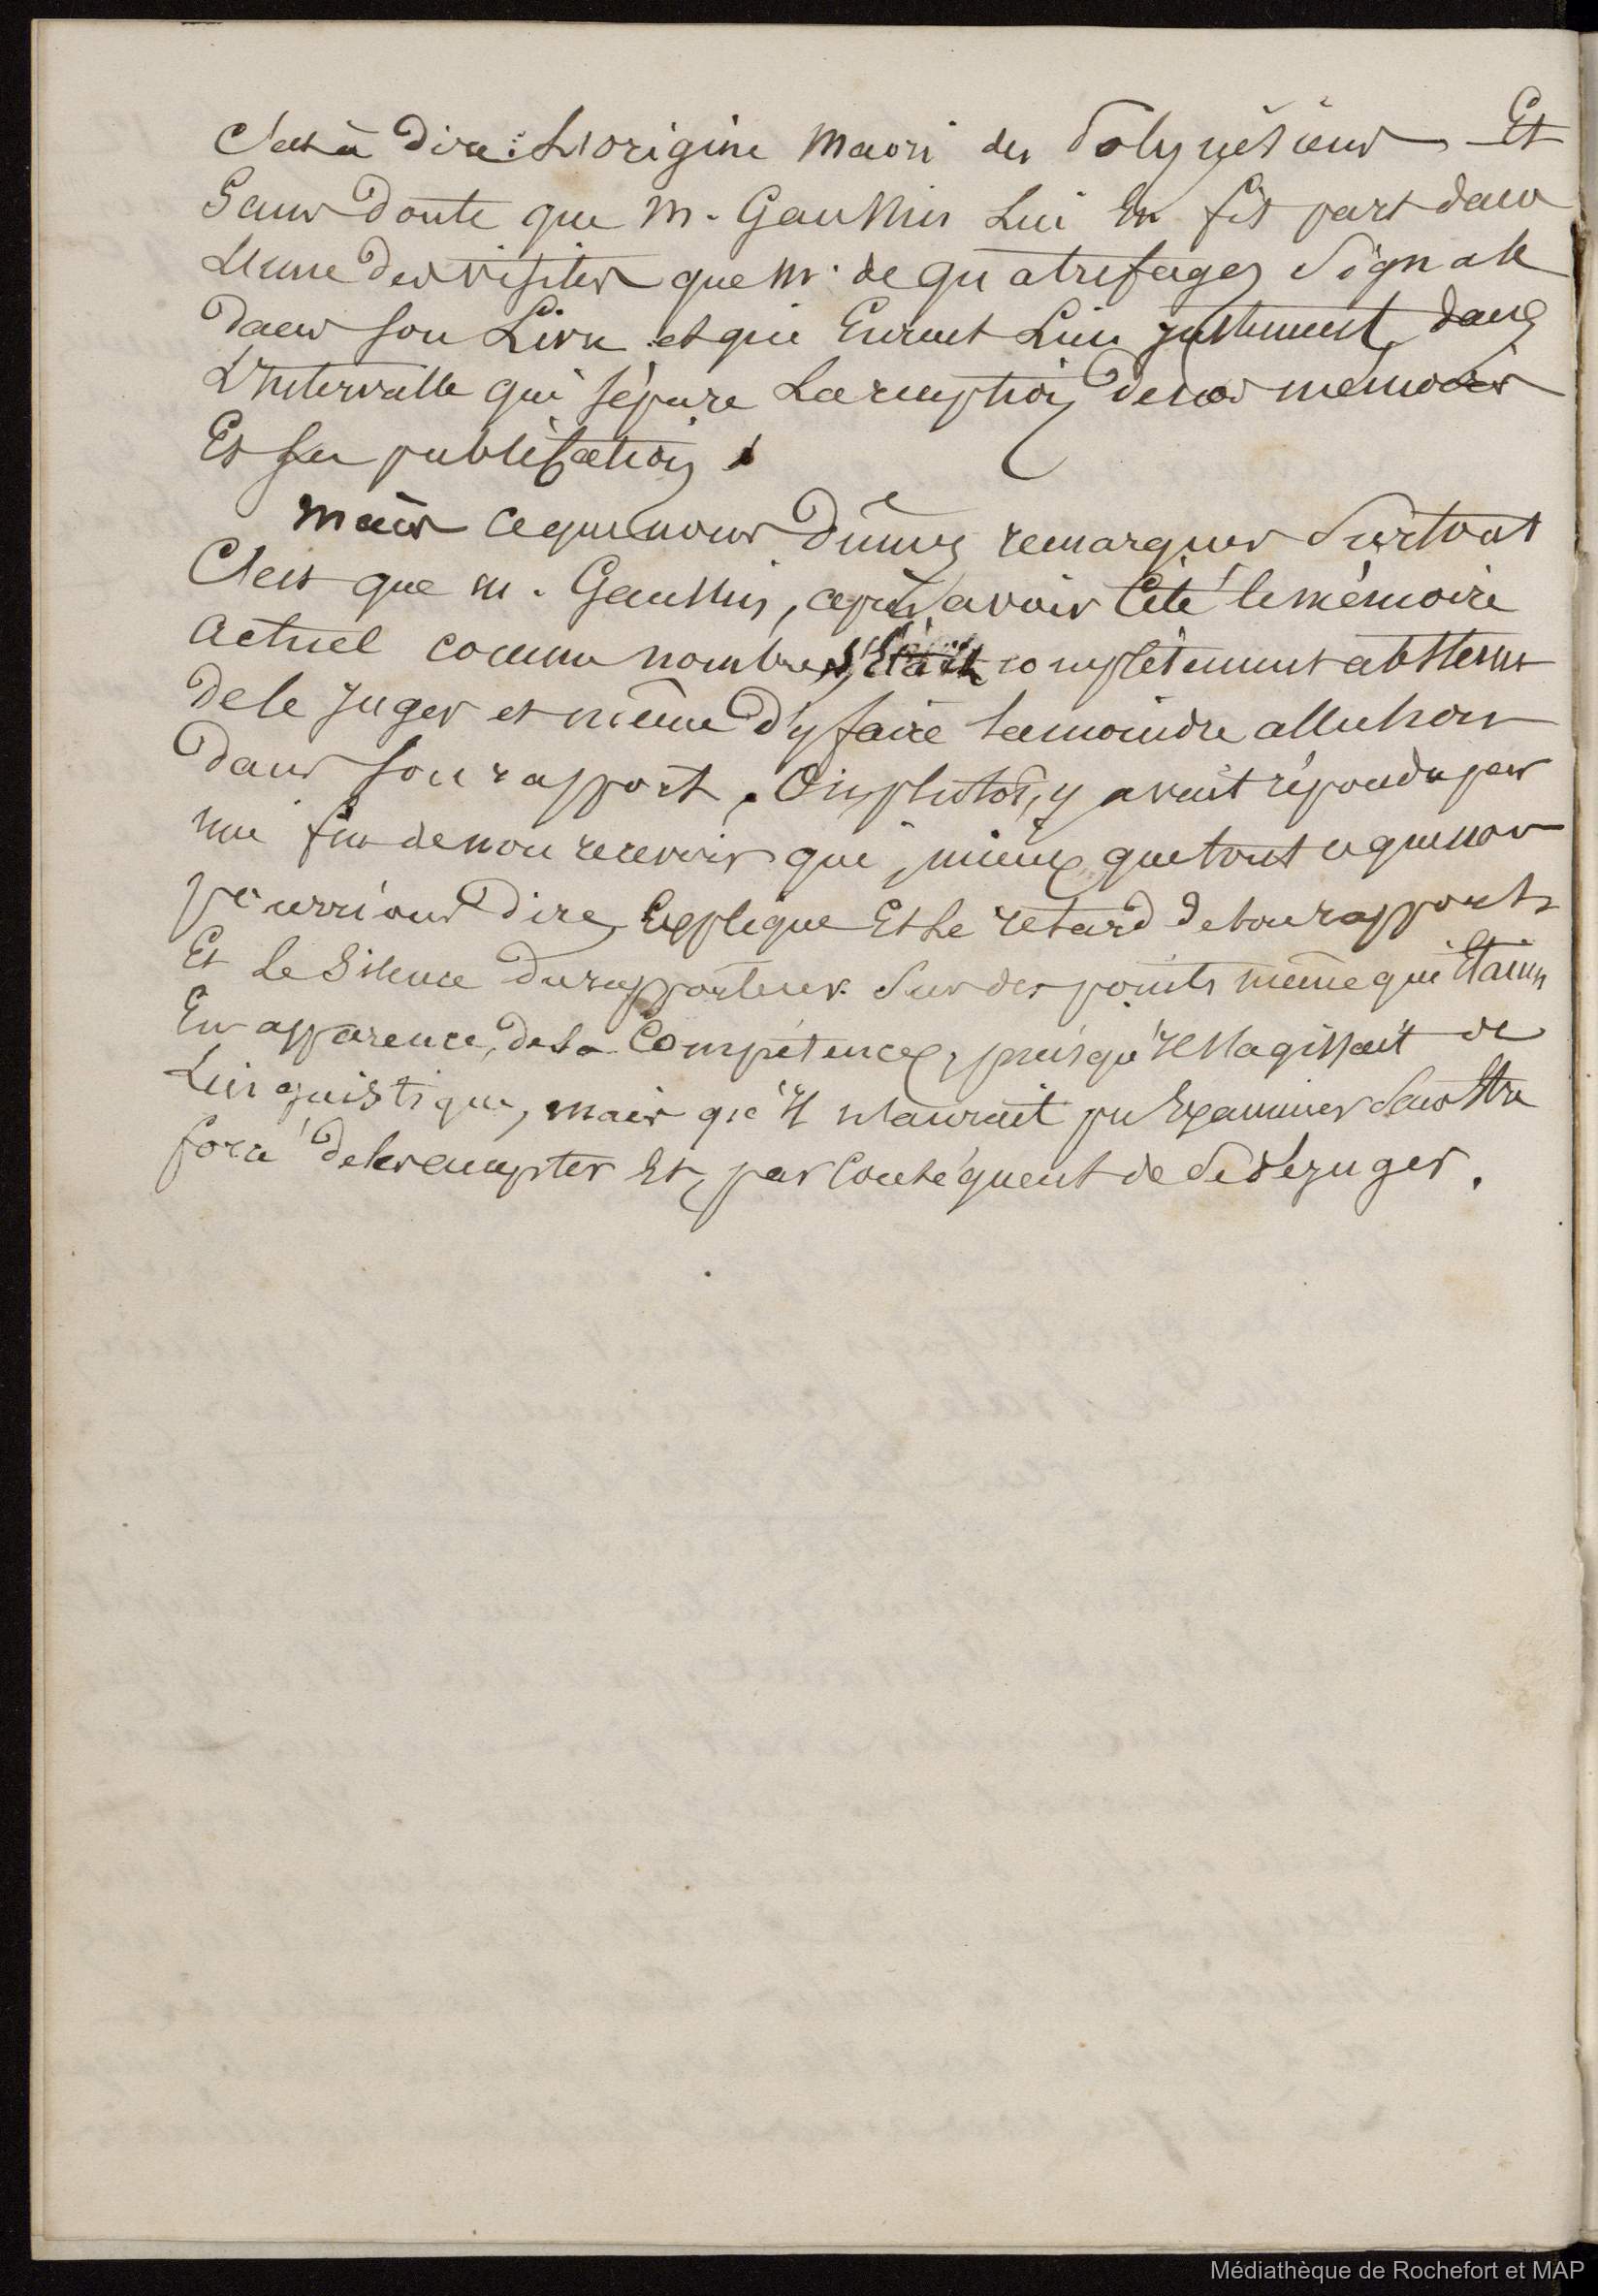 C'est à dire : L'origine Maori des Polynésiens Et
Sans Doute que M. Gaussin Lui en fit part dans
L'une des visites que Mr. de quatrefages Signale
Dans son Livre et qui Eurent Lieu justement dans
L'Intervalle qui sépare La réception de nos mémoires
Et sa publication.
Mais ce que nous Dûmes remarquer Surtout
C'est que M. Gaussin, après avoir Cité le mémoire
Actuel comme nombre, s'était complètement abstenu
De le Juger et même D'y faire la moindre allusion
Dans son rapport, Ou plutôt, y avait répondu par
une fin de non recevoir qui, mieux que tout ce que nous
pourrions Dire, Explique Et Le retard de son rapport
Et Le Silence du rapporteur Sur des points même qui Etaient
En apparence, de sa Compétence, puisqu'Il s'agissait de
Linguistique, mais qu'Il n'aurait pu Examiner Sans être
forcé de les accepter Et, par Conséquent de Se déjuger.
Médiathèque de Rochefort et MAP